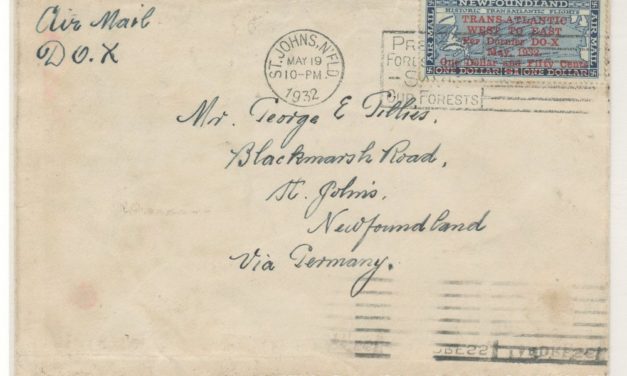 Air Mail
D.O.X
NEWFOUNDLAND
HISTORIC TRANSATLANTIC FLIGHTS
AIR MAIL
AIR MAIL
TRANS-ATLANTIC
WEST TO EAST
Per Dornier DO-X
May, 1932.
One Dollar and Fifty Cents
ONE DOLLAR $1 ONE DOLLAR
ST. JOHN'S, N'F'LD
MAY 19
10-PM
1932
FOREST
OUR FORESTS
Mr. George E Tillies.
Blackmarsh Road,
St. John's.
Newfoundland
Via Germany.